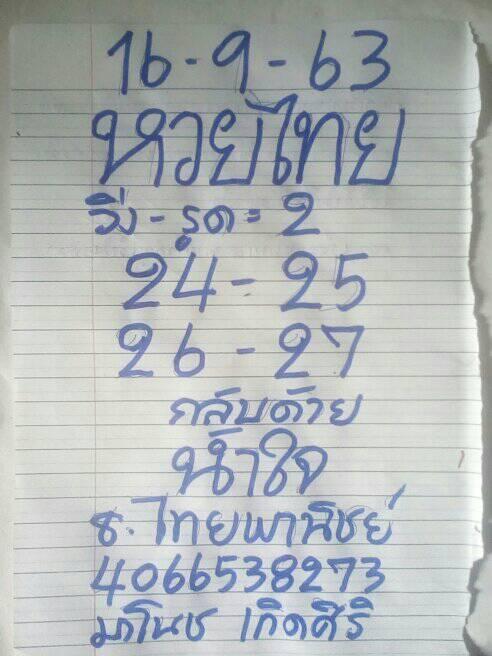 16-9-63
หวยไทย
วิ่ง-รูด=2
24-25
26-27
กลับด้วย
น้ำใจ
ธ.ไทยพานิชย์
4066538273
มาโนช เกิดศิริ